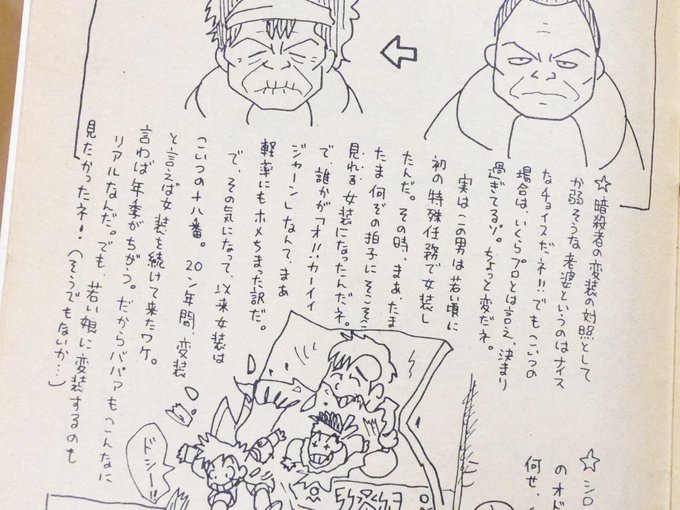 ☆暗殺者の変装の対照として
か弱そうな老婆というのはナイス
なチョイスだネ!!でもこいつの
場合は、いくらプロとは言え、決まり
過ぎてるゾ。ちょっと変だネ。
実はこの男は若い頃に
初の特殊任務で女装し
たんだ。その時、まぁ、たま
たま何ぞの拍子にそこそこ
見れる女装になったんだネ。
で、誰かが「オ!!カーイイ
ジャーンしなんて、まぁ
軽率にもホメちまった訳だ。
で、その気になって、以来女装は
こいつの十八番。20ン年間、変装
と言えば女装を続けて来たワケ。
言わば年季がちがう。だからババアも(こんなに
リアルなんだ。でも、若い娘に変装するのも
見たかったネ!(そうでもないか…)
☆シロ
のオド
何せ、
ドシー!!